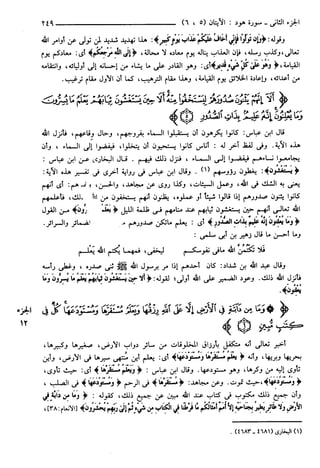 الجزء الثاني - سورة هود : الآيتان (٥ ، ٦) ٢٤٩
وقوله : ﴿وإن تولوا فإني أخاف عليكم عذاب يوم كبير﴾ : هذا تهديد شديد لمن تولى عن أوامر الله
تعالى، وكذب رسله، فإن العذاب يناله يوم معاده لا محالة، ﴿إلى الله مرجعكم﴾ أي : معادكم يوم
القيامة، ﴿وهو على كل شيء قدير﴾ أي : وهو القادر على ما يشاء من إحسانه إلى أوليائه، وانتقامه
من أعدائه، وإعادة الخلائق يوم القيامة، وهذا مقام الترهيب، كما أن الأول مقام ترغيب.
﴿ألا إنهم يثنون صدورهم ليستخفوا منه ألا حين يستغشون ثيابهم يعلم ما يسرون وما يعلنون
إنه عليم بذات الصدور﴾
قال ابن عباس : كانوا يكرهون أن يستقبلوا السماء بفروجهم، وحال وقاعهم، فأنزل الله
هذه الآية. وفي لفظ آخر له : أناس كانوا يستحيون أن يتخلوا، فيفضوا إلى السماء، وأن
يجامعوا نساءهم فيفضوا إلى السماء، فنزل ذلك فيهم. قال البخاري عن ابن عباس :
﴿يستغشون﴾ : يغطون رؤوسهم (١). وقال ابن عباس في رواية أخرى في تفسير هذه الآية :
يعني به الشك في الله، وعمل السيئات، وكذا روي عن مجاهد، والحسن، وغيرهم : أي أنهم
كانوا يثنون صدورهم إذا قالوا شيئاً أو عملوه، يظنون أنهم يستخفون من الله بذلك، فأعلمهم
الله تعالى أنهم حين يستغشون ثيابهم عند منامهم في ظلمة الليل ﴿يعلم ما يسرون﴾ من القول
﴿وما يعلنون إنه عليم بذات الصدور﴾ أي : يعلم ما تكن صدورهم من النيات والضمائر والسرائر.
وما أحسن ما قال زهير بن أبي سلمى :
فلا تكتمن الله ما في نفوسكم ليخفى، فمهما يكتم الله يعلم
وقال عبد الله بن شداد : كان أحدهم إذا مر برسول الله ﷺ ثنى صدره، وغطى رأسه
فأنزل الله ذلك. وعود الضمير على الله أولى، لقوله : ﴿ألا حين يستغشون ثيابهم يعلم ما يسرون وما
يعلنون﴾.
﴿وما من دابة في الأرض إلا على الله رزقها ويعلم مستقرها ومستودعها كل في
كتب مبين﴾
الجزء
١٢
أخبر تعالى أنه متكفل بأرزاق المخلوقات من سائر دواب الأرض، صغيرها وكبيرها،
بحريها وبريها، وأنه ﴿يعلم مستقرها ومستودعها﴾ أي : يعلم أين منتهى سيرها في الأرض، وأين
تأوي إليه من وكرها، وهو مستودعها. وقال ابن عباس : ﴿ويعلم مستقرها﴾ أي : حيث تأوي،
﴿ومستودعها﴾ حيث تموت. وعن مجاهد : ﴿مستقرها﴾ في الرحم ﴿ومستودعها﴾ في الصلب،
وأن جميع ذلك مكتوب في كتاب عند الله مبين عن جميع ذلك، كقوله : ﴿وما من دابة في
الأرض ولا طائر يطير بجناحيه إلا أمم أمثالكم ما فرطنا في الكتاب من شيء ثم إلى ربهم يحشرون﴾ [الأنعام : ٣٨]،
(١) البخاري (٤٦٨١ - ٤٦٨٣).